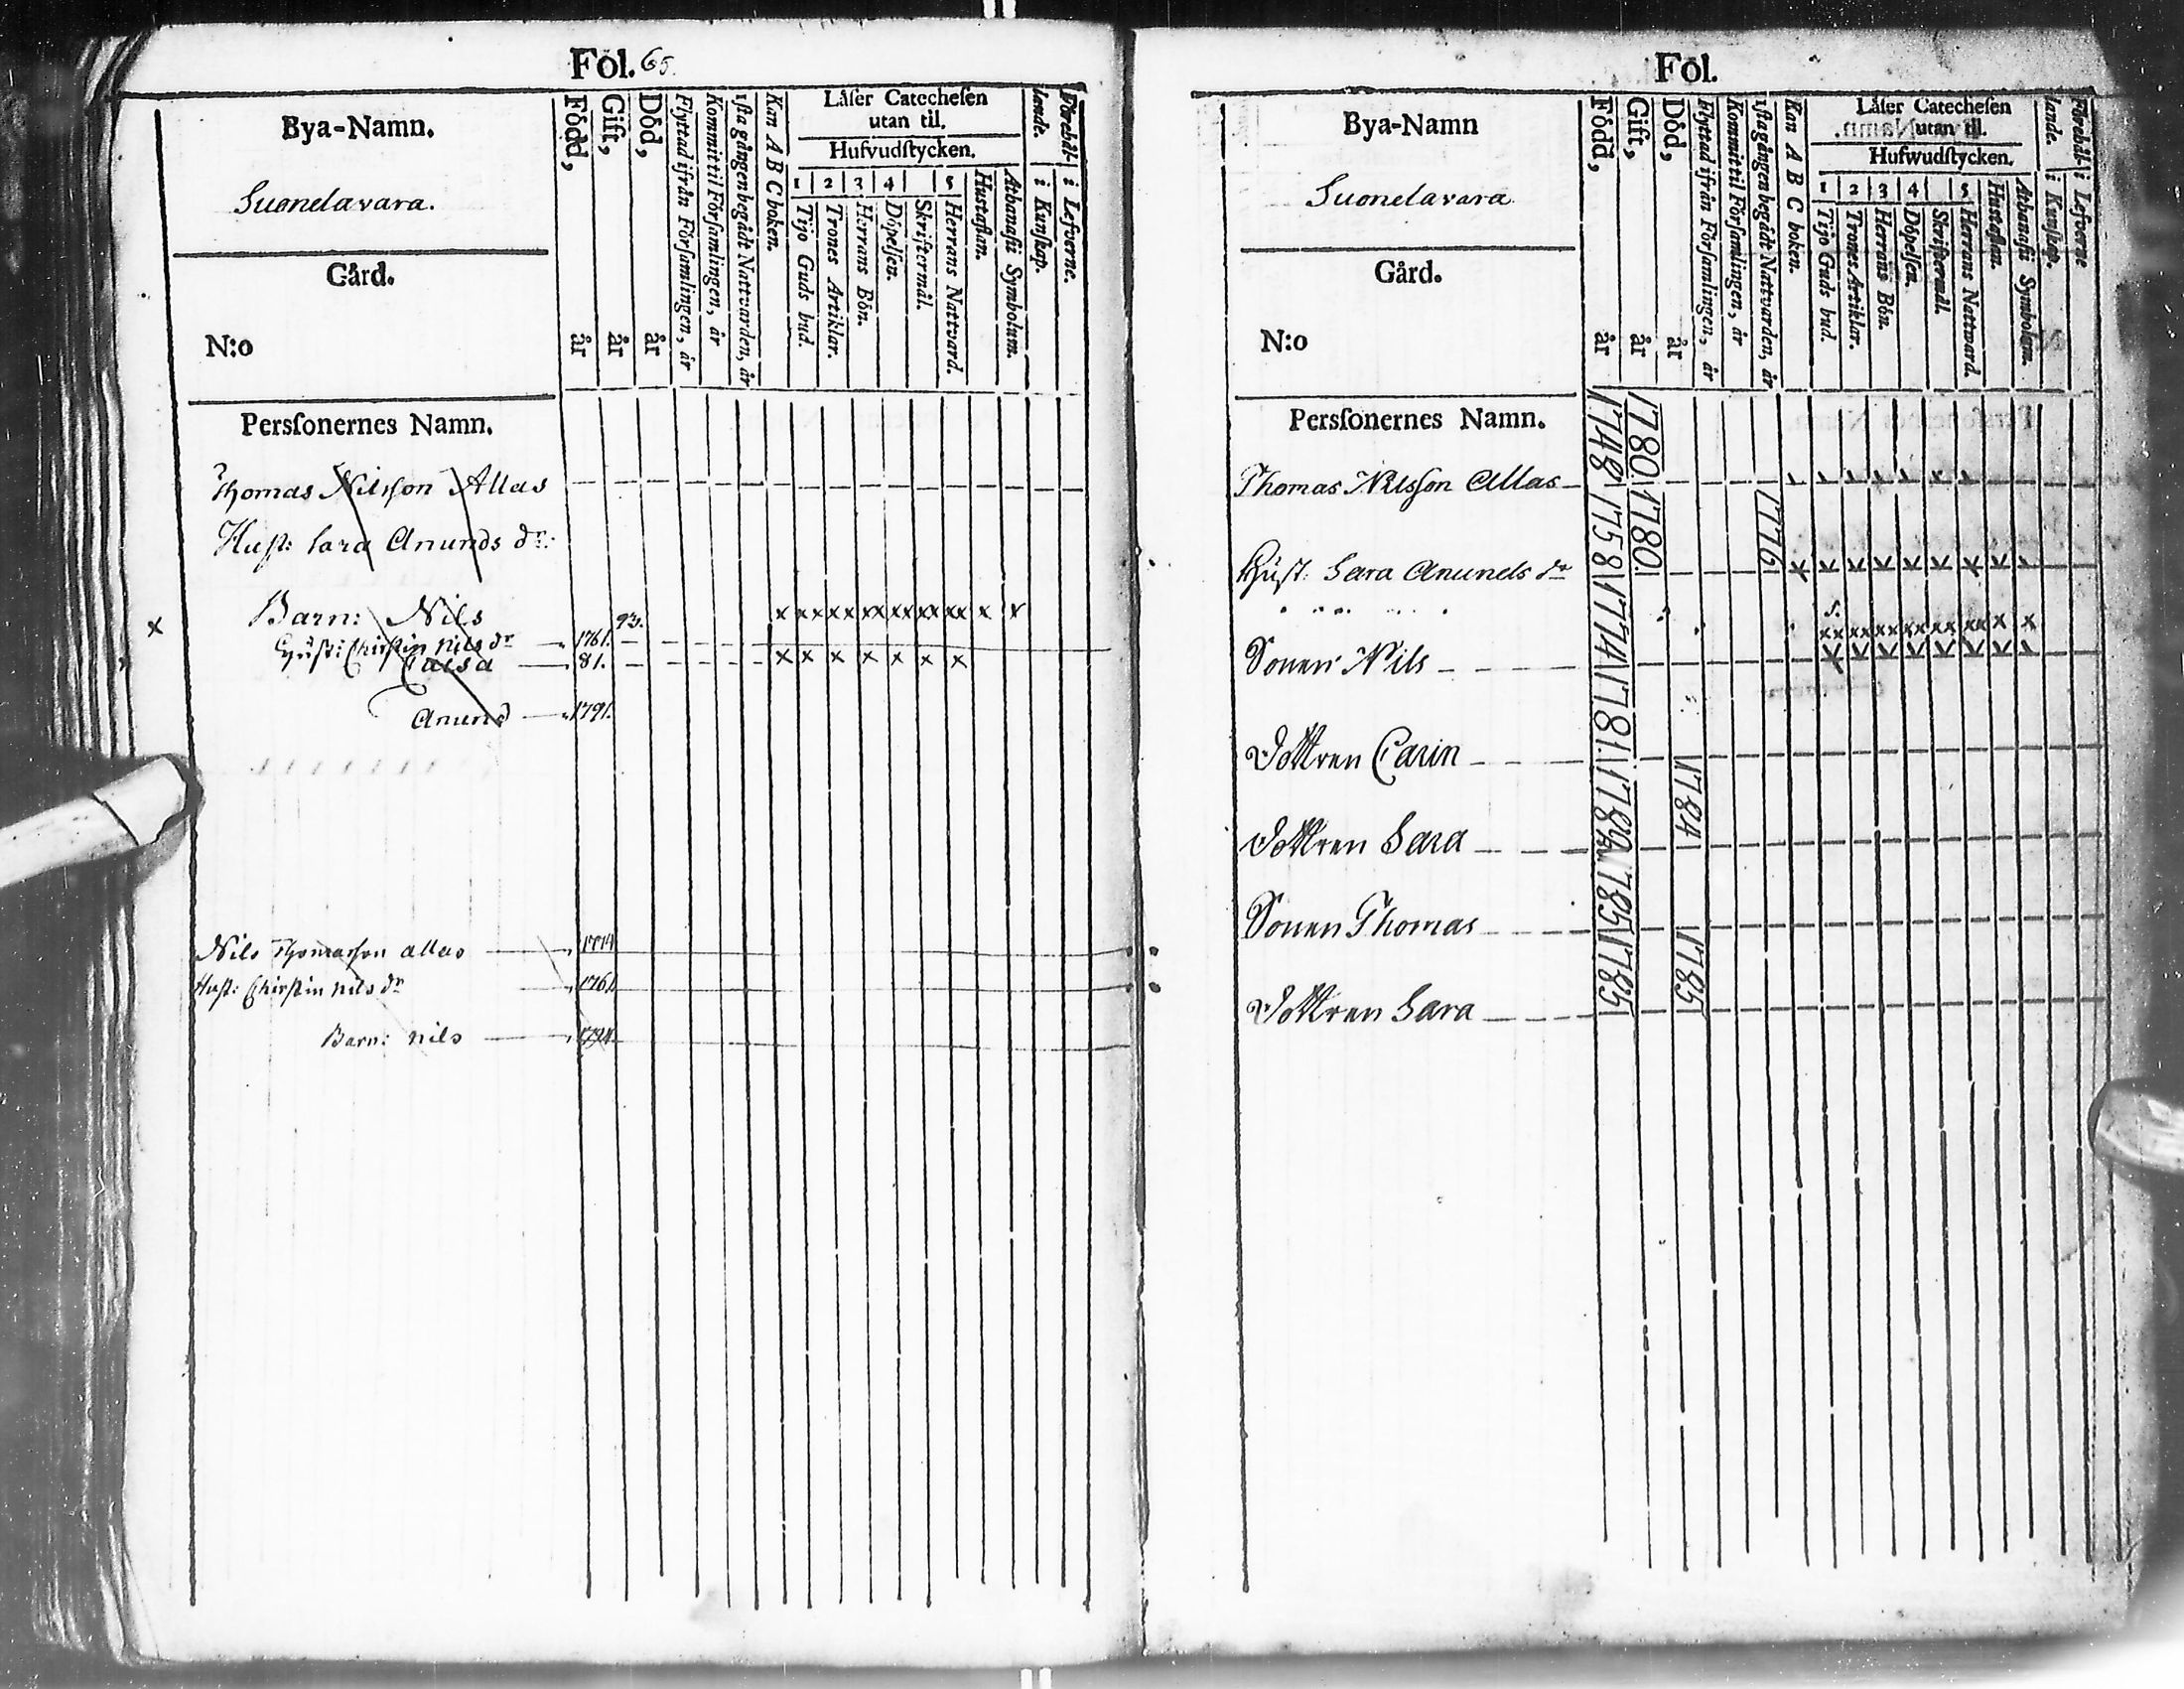 Föl. 65.
Bya-Namn.
Suonelavara.
Gård.
N:o
Persſonernes Namn.
Född, år
Gift, år
Död, år
Flyttad ifrån Förſamlingen, år
Kommit til Förſamlingen, år
1ſta gången begådt Nattvarden, år
Kan A B C boken.
Låſer Catecheſen
utan til.
Hufvudſtycken.
1 2 3 4 5
Tijo Guds bud.
Trones Artiklar.
Herrans Bön.
Döpelſen.
Skriftermål.
Herrans Nattvard.
Huſtaflan.
Athanaſii Symbolum.
Förehål-
lande.
i Kunſkap.
i Lefverne.
Thomas Nilsson Allas
Huſt: Sara Anunds dr:
Barn: Nils 93.
x
Huſt: Chirſtin Nils dr 1761.
Cajsa 81.
Anund 1791.
Nils Thomasſon allas 1774
Huſt: Chirſtin nils dr 1761
Barn: nils 1794
Föl.
Bya-Namn
Suonelavara
Gård.
N:o
Persſonernes Namn.
Född, år
Gift, år
Död, år
Flyttad ifrån Förſamlingen, år
Kommit til Förſamlingen, år
1ſta gången begådt Nattvarden, år
Kan A B C boken.
Låſer Catecheſen
utan til.
Hufwudſtycken.
1 2 3 4 5
Tijo Guds bud.
Trones Artiklar.
Herrans Bön.
Döpelſen.
Skriftermål.
Herrans Nattvard.
Huſtaflan.
Athanaſii Symbolum.
Förehål-
lande.
i Kunſkap.
i Lefverne
Thomas Nilsſon Allas 1748 1780
Huſt: Sara Anunds dr 1758 1780. 1776
Sonen Nils 1774
Dottren Carin 1781.
Dottren Sara 1784
Sonen Thomas 1785
Dottren Sara 1785 1785